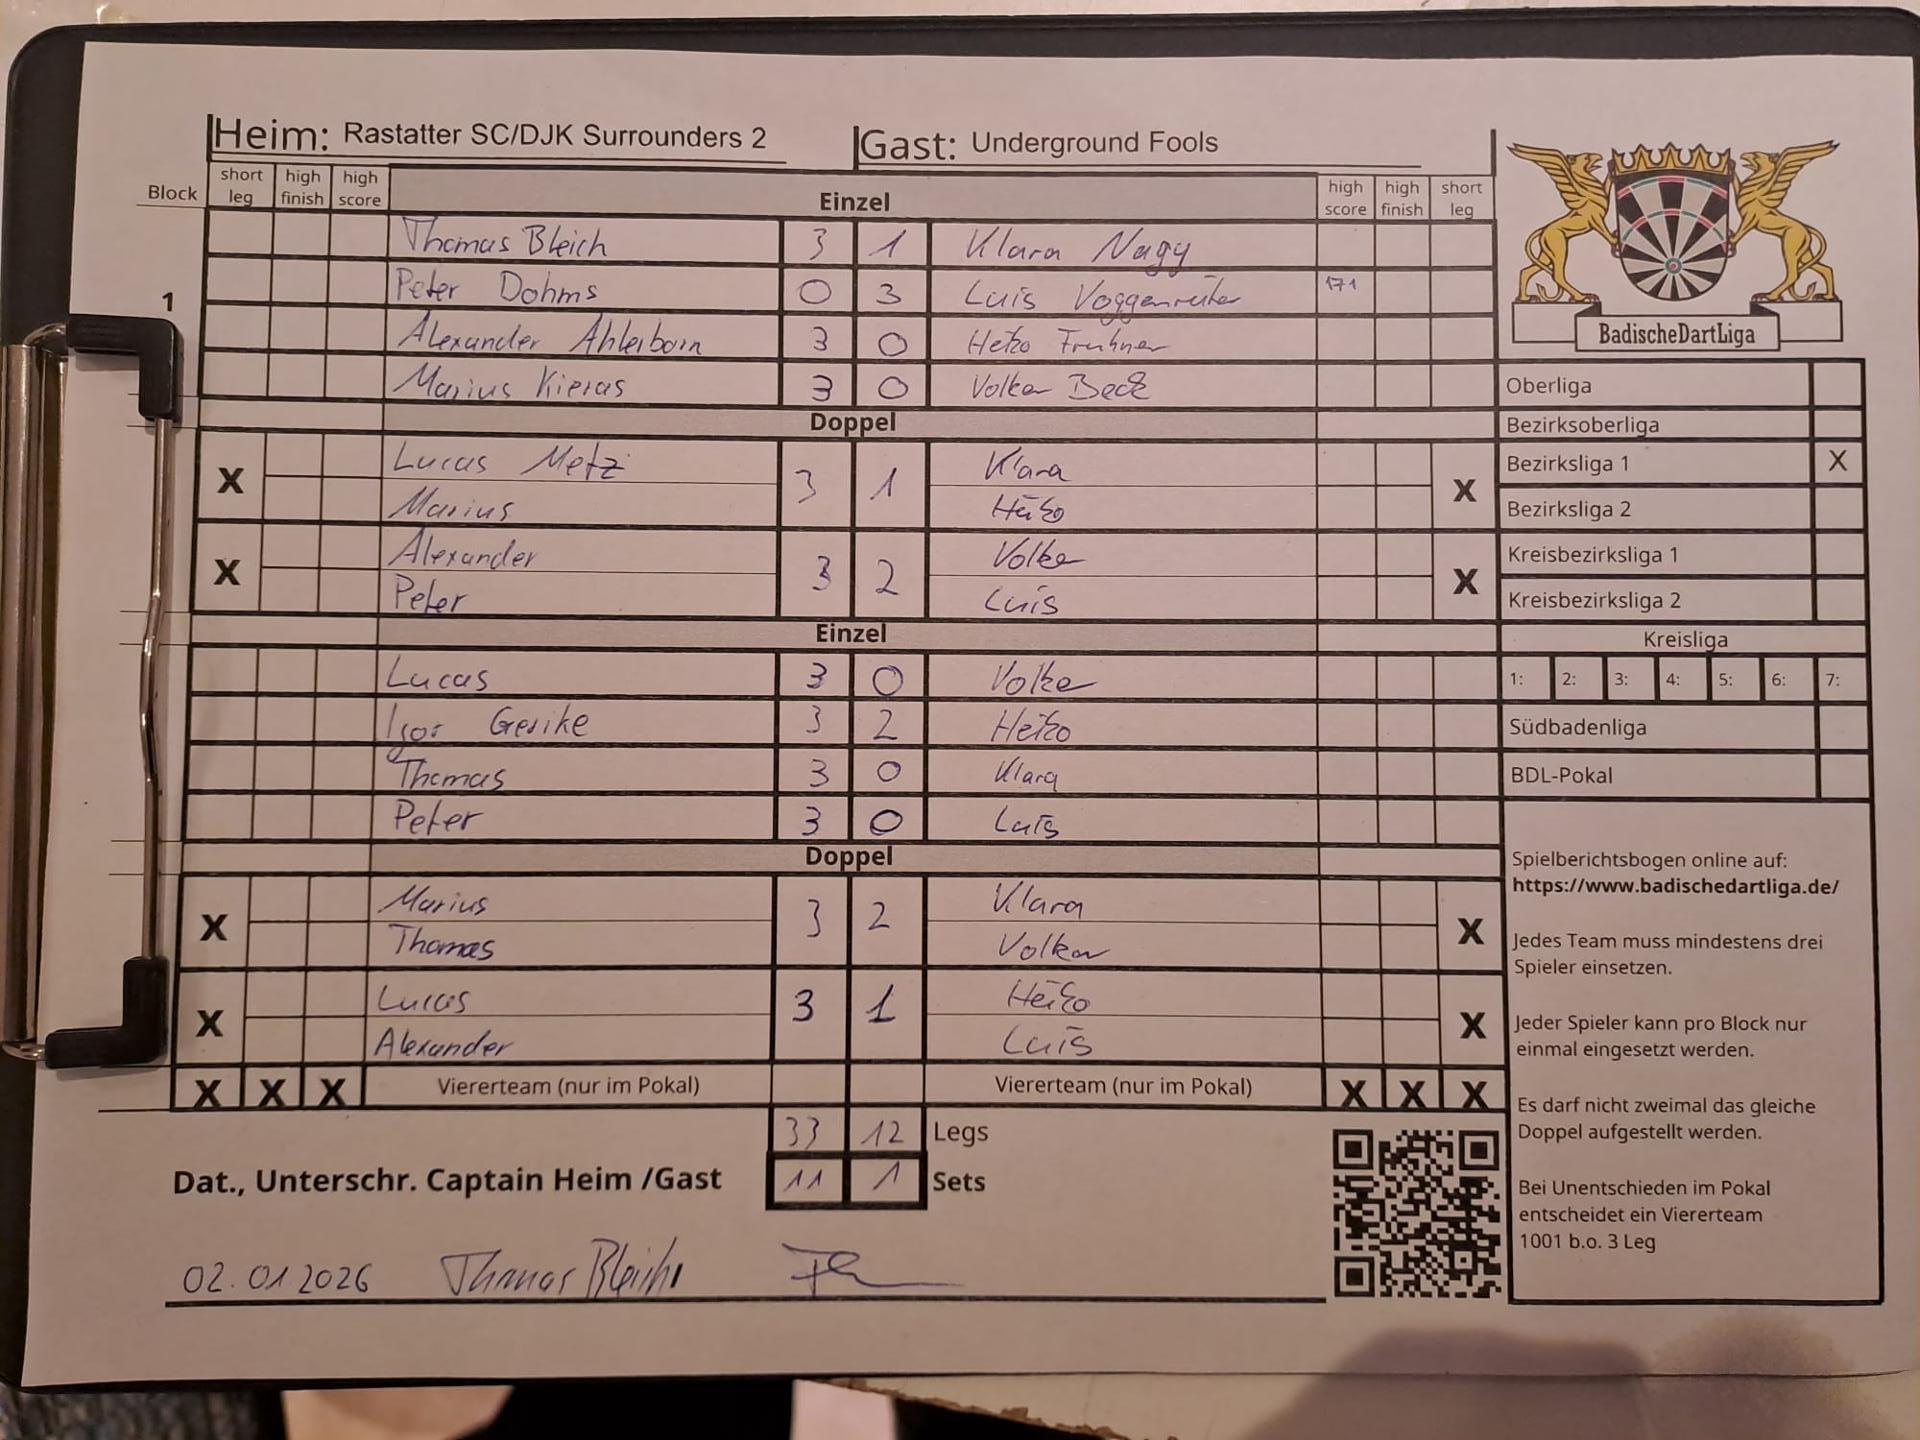 Heim: Rastatter SC/DJK Surrounders 2 Gast: Underground Fools
Block short leg high finish high score Einzel high score high finish short leg
1
Thomas Bleich 3 1 Klara Nagy
Peter Dohms 0 3 Luis Voggenreiter 171
Alexander Ahlerborn 3 0 Heiko
Marius Kieras 3 0 Volker Beck
Doppel
X Lucas Metz 3 1 Klara X
Marius Heiko
X Alexander 3 2 Volker X
Peter Luis
Einzel
Lucas 3 0 Volker
Igor Gerike 3 2 Heiko
Thomas 3 0 Klara
Peter 3 0 Luis
Doppel
X Marius 3 2 Klara X
Thomas Volker
X Lucas 3 1 Heiko X
Alexander Luis
X X X Viererteam (nur im Pokal) Viererteam (nur im Pokal) X X X
33 12 Legs
Dat., Unterschr. Captain Heim /Gast 11 1 Sets
02.01.2026 Thomas Bleich
BadischeDartLiga
Oberliga
Bezirksoberliga
Bezirksliga 1 X
Bezirksliga 2
Kreisbezirksliga 1
Kreisbezirksliga 2
Kreisliga
1: 2: 3: 4: 5: 6: 7:
Südbadenliga
BDL-Pokal
Spielberichtsbogen online auf:
https://www.badischedartliga.de/
Jedes Team muss mindestens drei
Spieler einsetzen.
Jeder Spieler kann pro Block nur
einmal eingesetzt werden.
Es darf nicht zweimal das gleiche
Doppel aufgestellt werden.
Bei Unentschieden im Pokal
entscheidet ein Viererteam
1001 b.o. 3 Leg